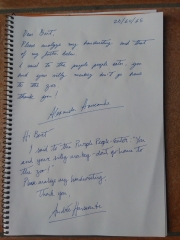 22/04/23
Dear Bart,
Please analyze my handwriting and that
of my sister below.
I said to the purple people eater, you
and your silly monkey don't go home
to the zoo.
Thank you!
Alexandra Hernandez
Hi Bart
I said to the Purple People-Eater "You
and your silly monkey don't go home to
the zoo!"
Please analyze my handwriting.
Thank you,
Hernandez